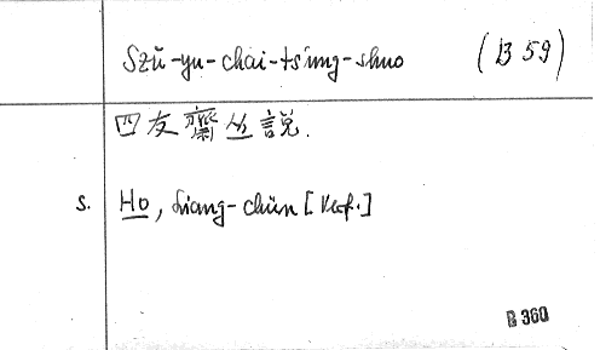 Szŭ-yu-chai-ts'ung-shuo (B 59)
四友齋丛説.
s. Ho, Liang-chün [Verf.]
B 360